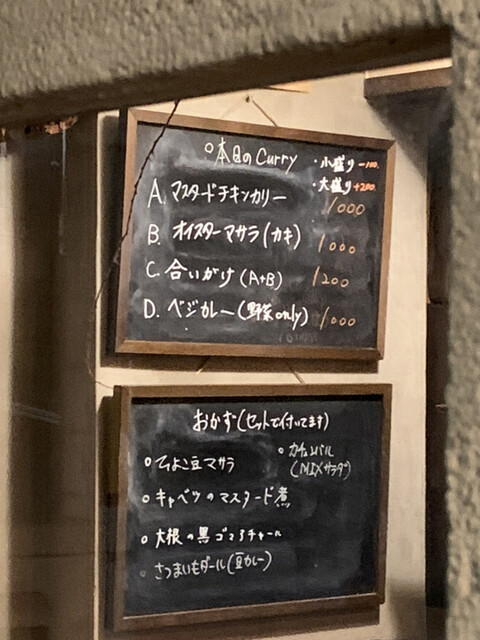 ○本日のCurry
・小盛り-100.
・大盛り+200.
A. マスタードチキンカリー 1000
B. オイスターマサラ(カキ) 1000
C. 合いがけ(A+B) 1200
D. ベジカレー(野菜only) 1000
おかず(セットで付いてます)
○ひよこ豆マサラ
○カチュンバル
(MIXサラダ)
○キャベツのマスタード煮
○大根の黒ゴマアチャール
○さつまいもダール(豆カレー)